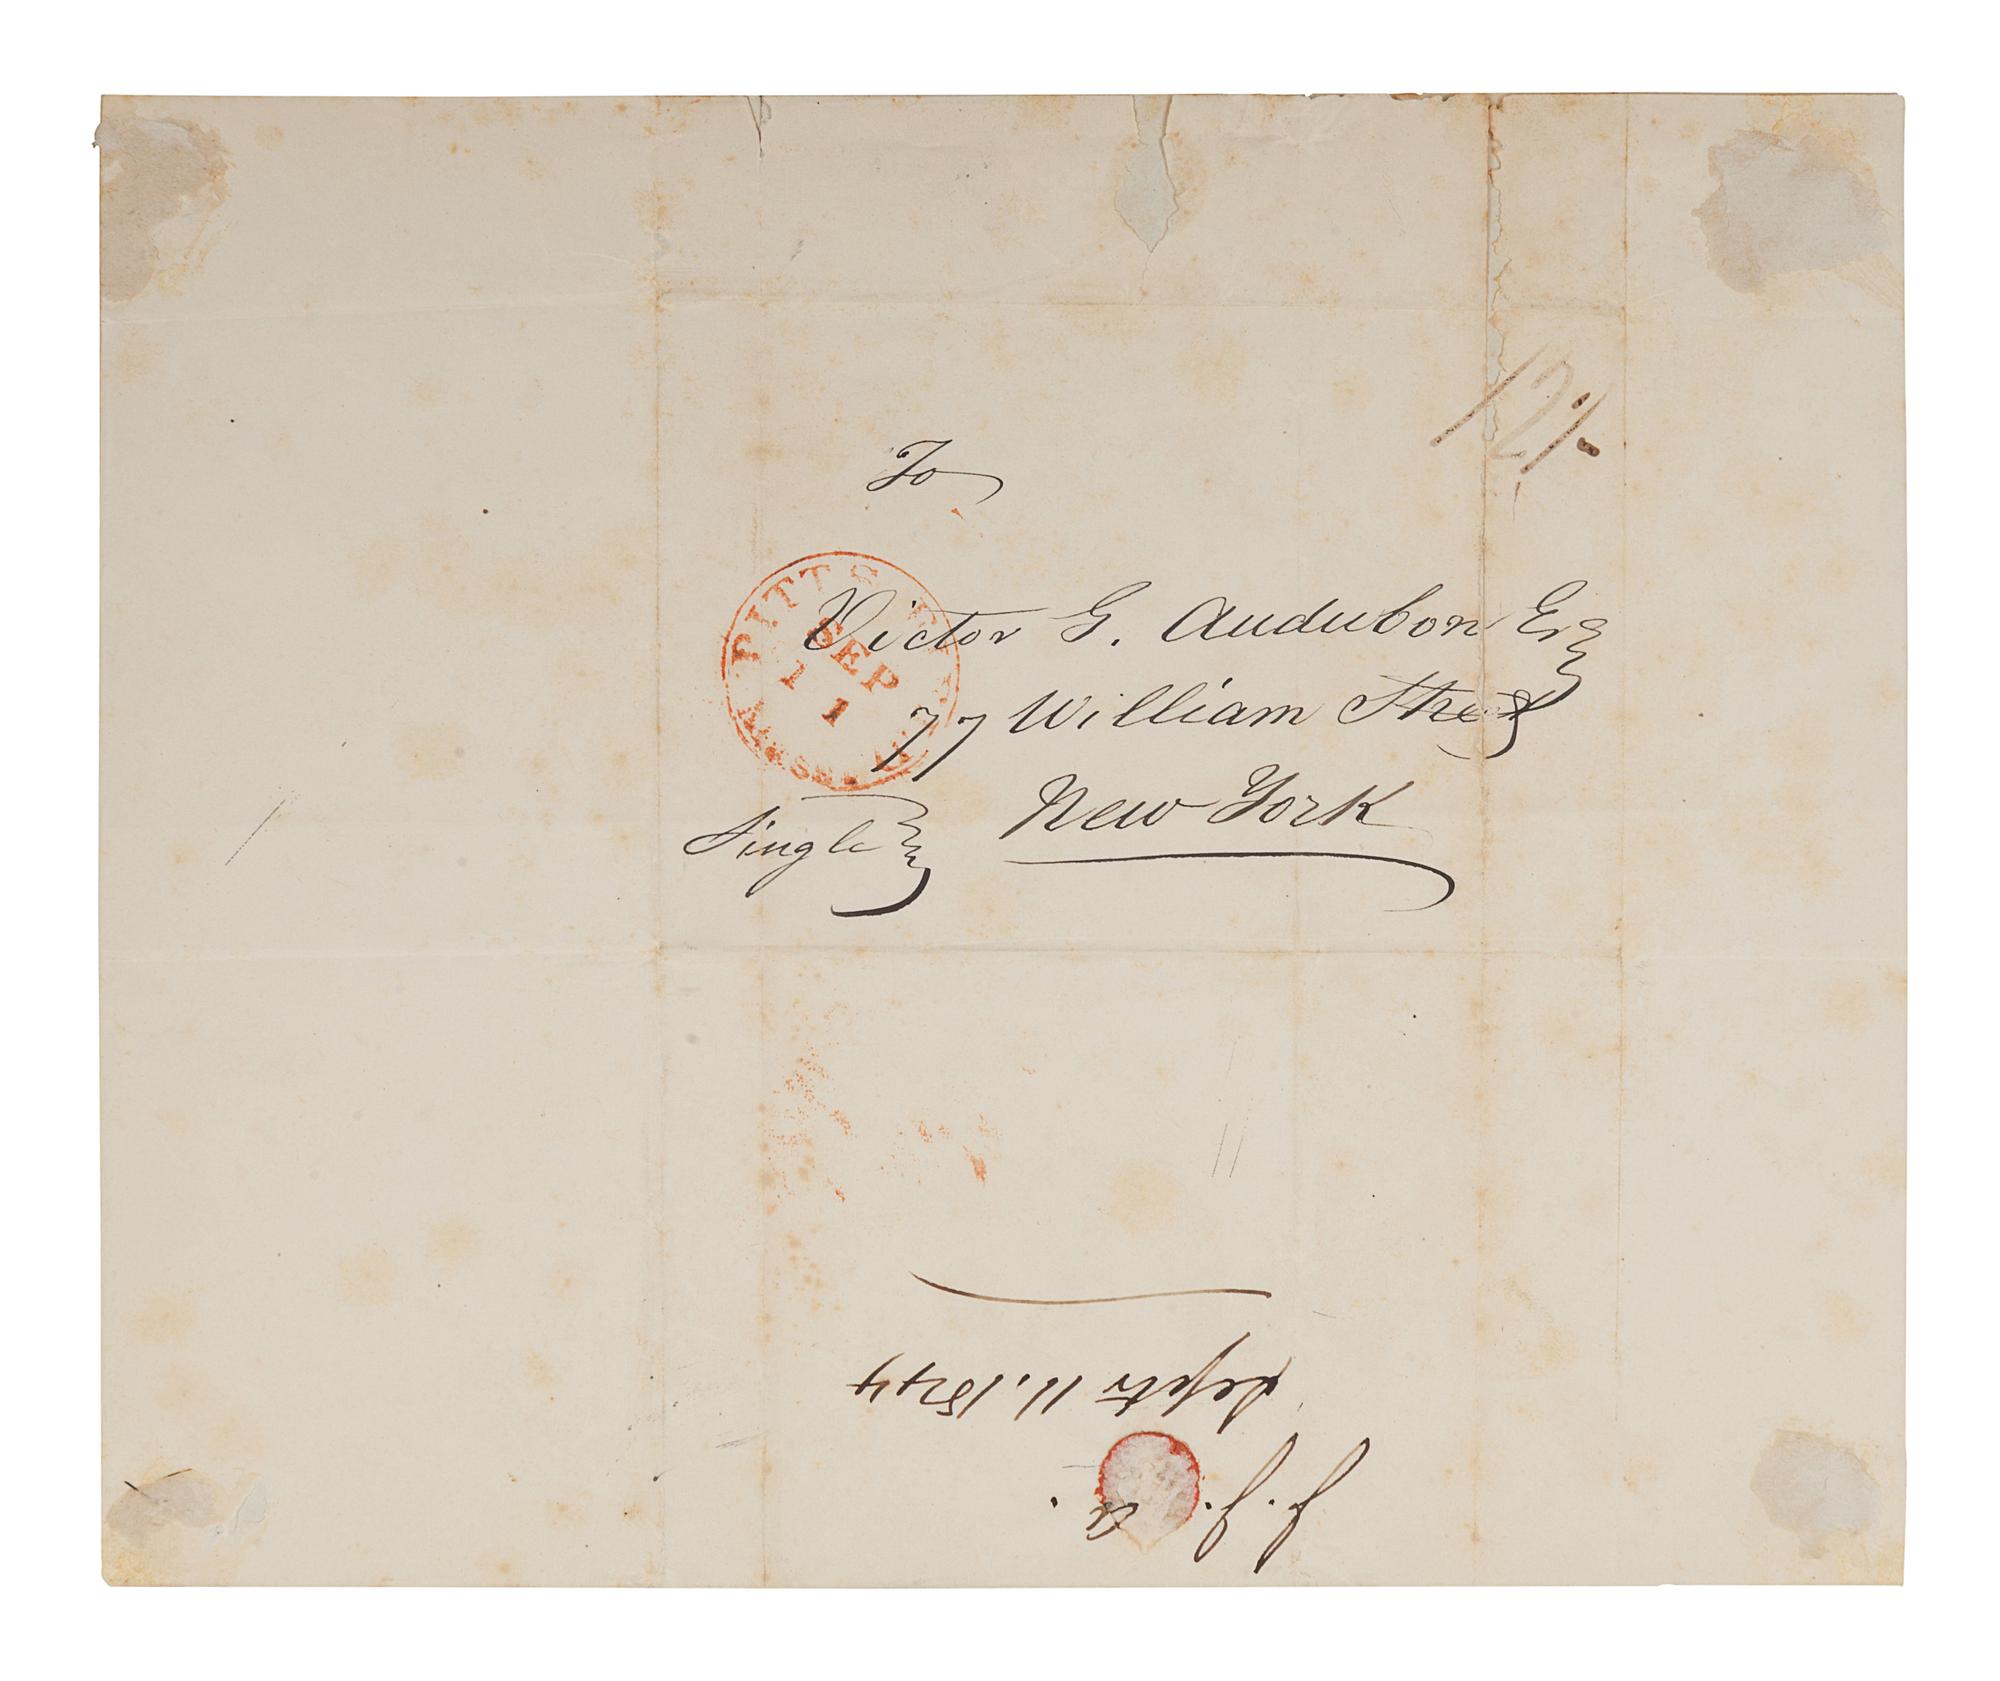 12½
To
Victor G. Audubon Esq
77 William Street
New York
Single
PITTSFIELD
SEP
11
MASS.
J. J. A.
Septr 11. 1844